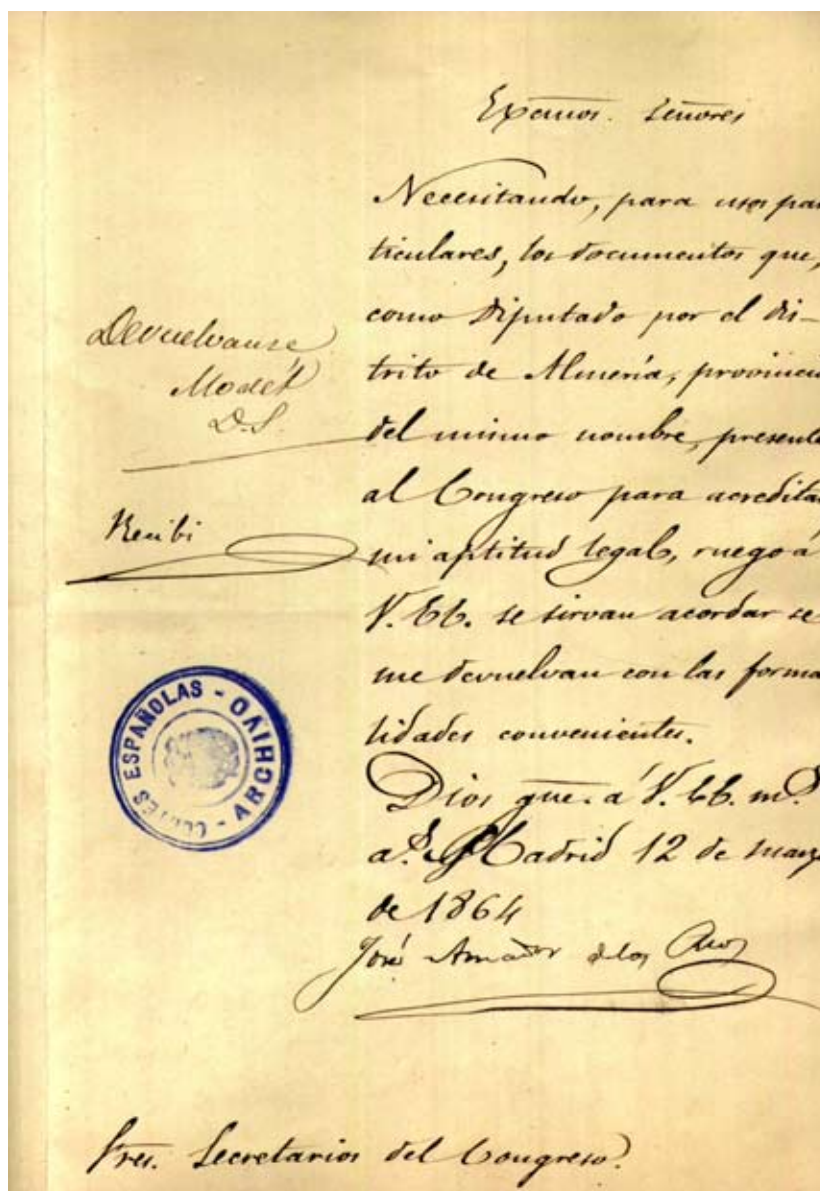 Excmos. Señores
Necesitando, para usos par
ticulares, los documentos que,
como Diputado por el dis-
trito de Almería, provincia
del mismo nombre, presenté
al Congreso para acreditar
mi aptitud legal, ruego á
V. EE. se sirvan acordar se
me devuelvan con las forma
lidades convenientes.
Dios gue. a V. EE. ms.
as. Madrid 12 de marzo
de 1864
José Amador de los Rios
Devuelvanse
D.S.
Recibi
CORTES ESPAÑOLAS - ARCHIVO -
Sres. Secretarios del Congreso.